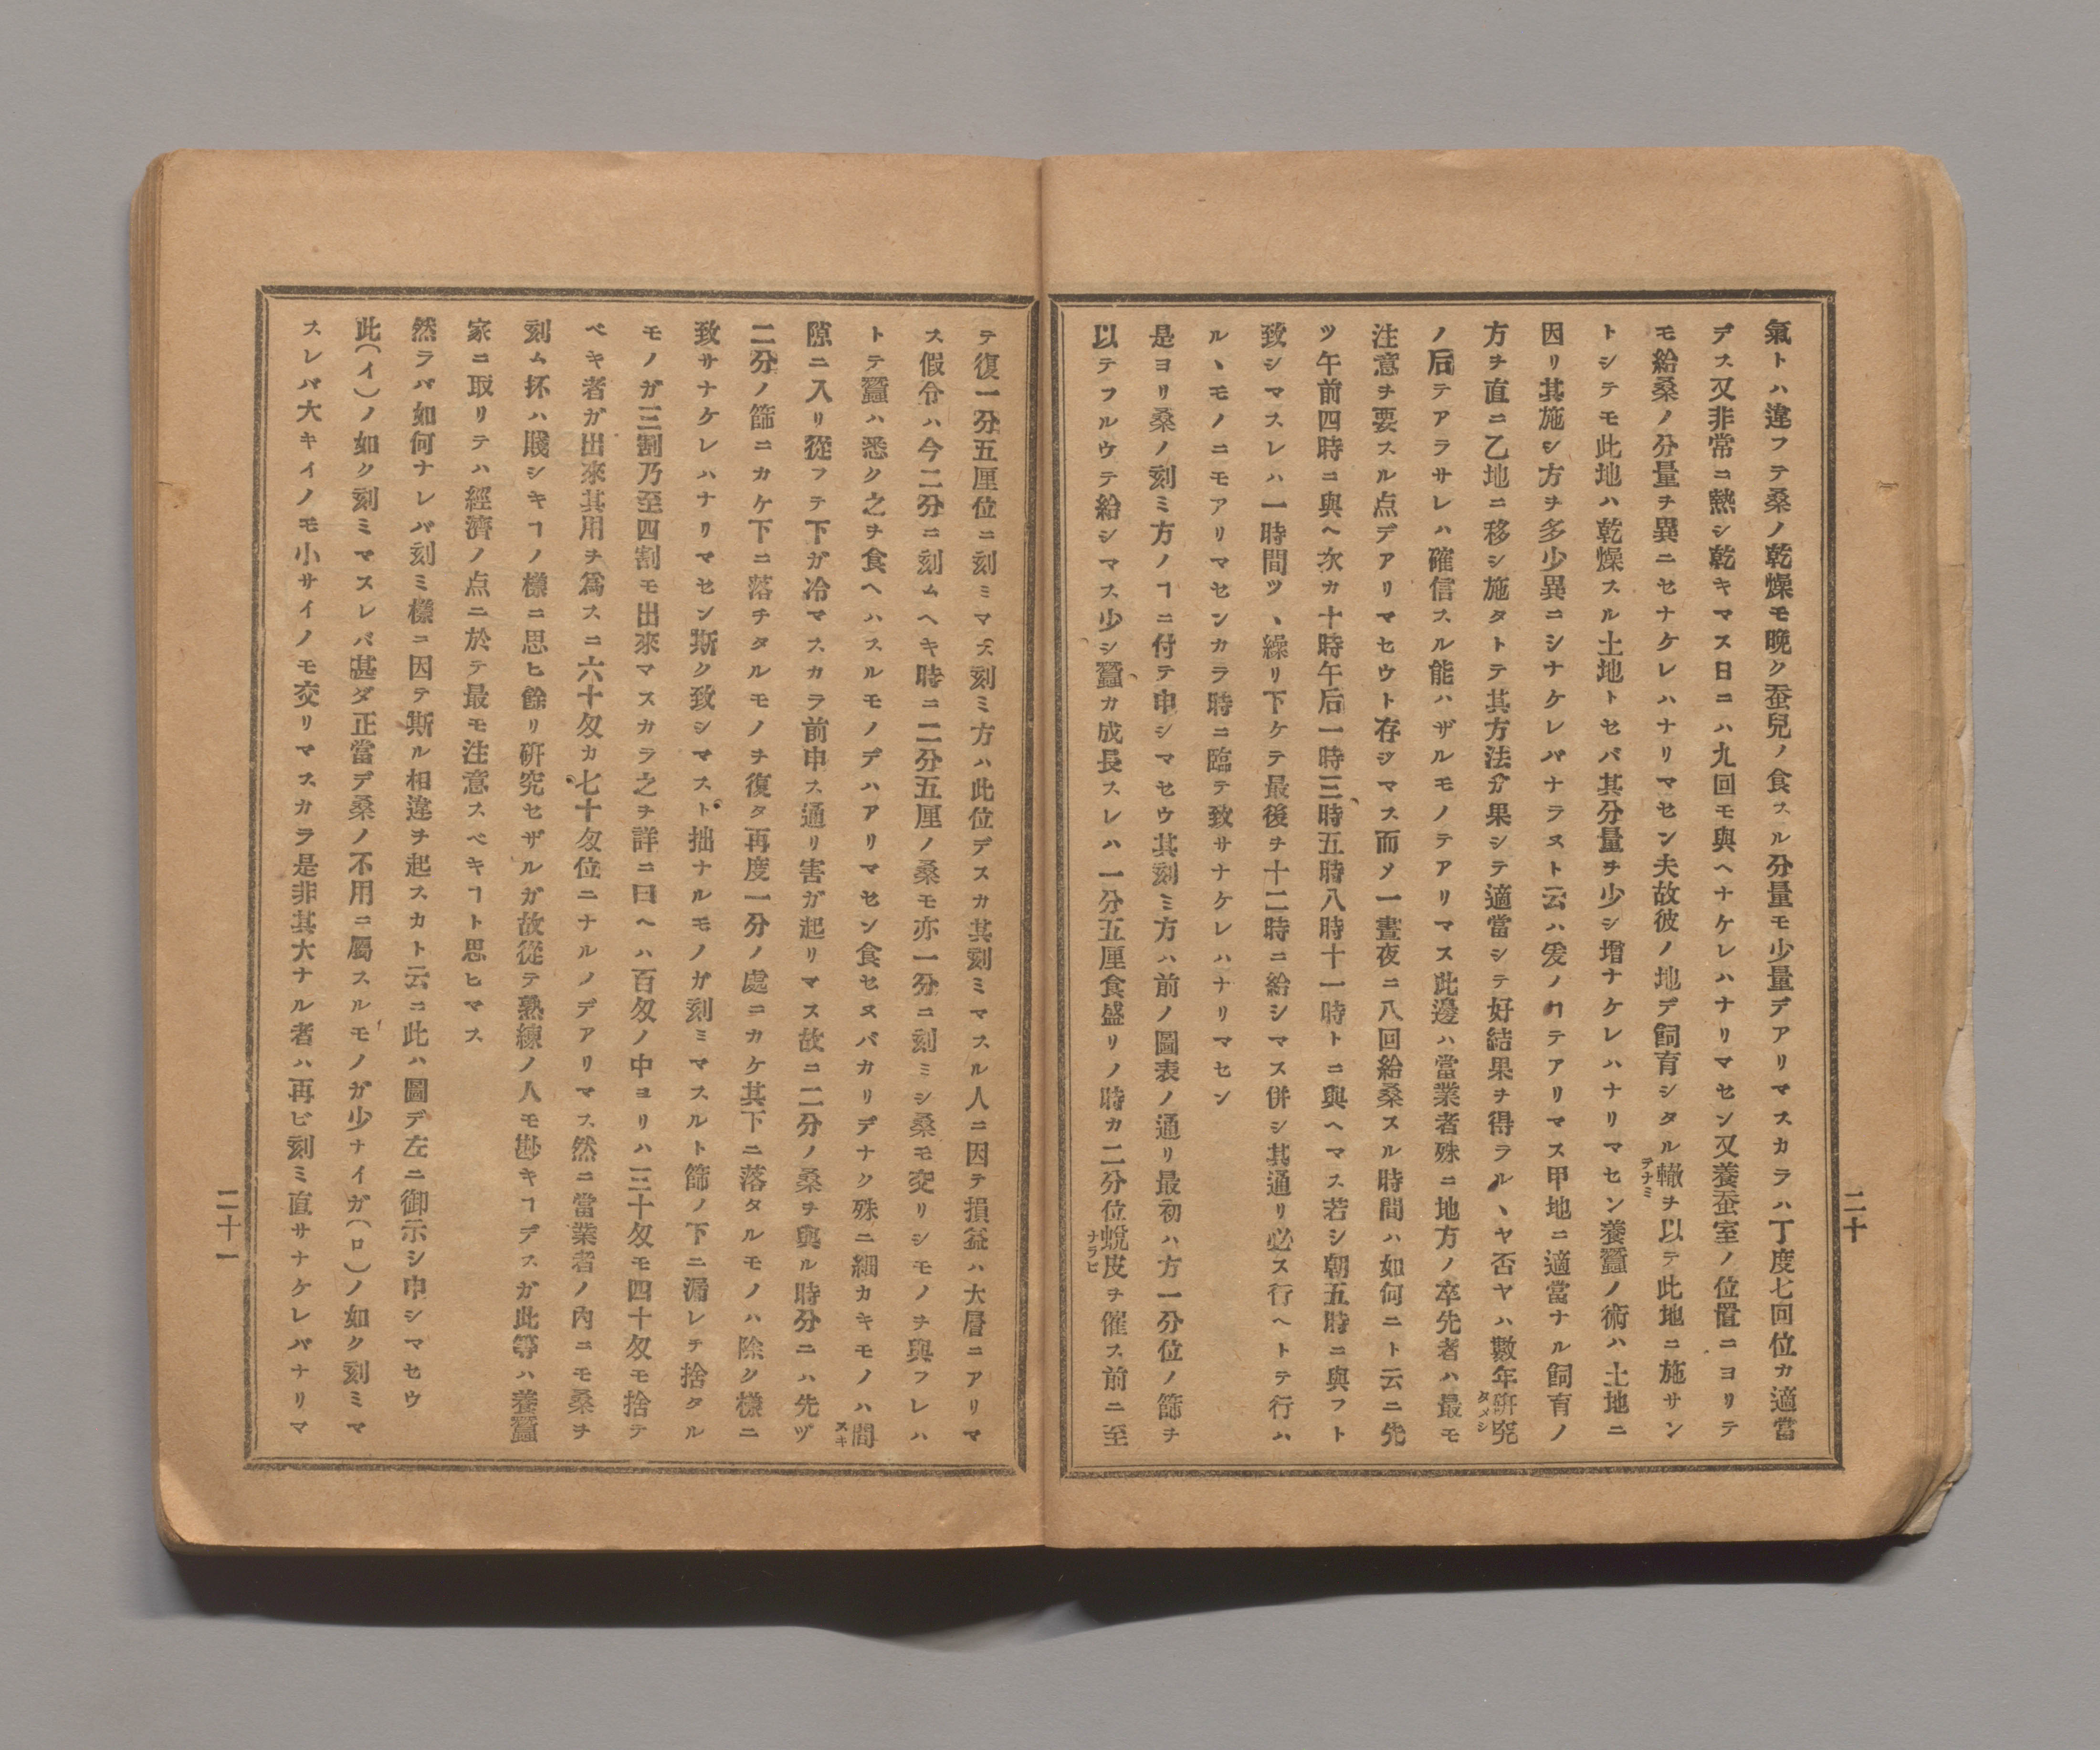 氣トハ違フテ桑ノ乾燥モ晩ク蚕兒ノ食スル分量モ少量デアリマスカラハ丁度七回位カ適當
デス又非常ニ熱シ乾キマス日ニハ九回モ與ヘナケレハナリマセン又養蚕室ノ位置ニヨリテ
モ給桑ノ分量ヲ異ニセナケレハナリマセン夫故彼ノ地デ飼育シタル轍ヲ以テ此地ニ施サン
テナミ
トシテモ此地ハ乾燥スル土地トセバ其分量ヲ少シ増ナケレハナリマセン養蠶ノ術ハ土地ニ
因リ其施シ方ヲ多少異ニシナケレバナラヌト云ハ爰ノヿテアリマス甲地ニ適當ナル飼育ノ
方ヲ直ニ乙地ニ移シ施タトテ其方法ガ果シテ適當シテ好結果ヲ得ラルヽヤ否ヤハ數年硏究
タメシ
ノ后テアラサレハ確信スル能ハザルモノテアリマス此邊ハ當業者殊ニ地方ノ卒先者ハ最モ
注意ヲ要スル点デアリマセウト存ジマス而ソ一晝夜ニ八回給桑スル時間ハ如何ニト云ニ先
ツ午前四時ニ與ヘ次カ十時午后一時三時五時八時十一時トニ與ヘマス若シ朝五時ニ與フト
致シマスレハ一時間ツヽ繰リ下ケテ最後ヲ十二時ニ給シマス併シ其通リ必ス行ヘトテ行ハ
ルヽモノニモアリマセンカラ時ニ臨テ致サナケレハナリマセン
是ヨリ桑ノ刻ミ方ノヿニ付テ申シマセウ其刻ミ方ハ前ノ圖表ノ通リ最初ハ方一分位ノ篩ヲ
以テフルウテ給シマス少シ蠶カ成長スレハ一分五厘食盛リノ時カ二分位蛻皮ヲ催ス前ニ至
ナラヒ
二十
テ復一分五厘位ニ刻ミマス刻ミ方ハ此位デスカ其刻ミマスル人ニ因テ損益ハ大層ニアリマ
ス假令ハ今二分ニ刻ムヘキ時ニ二分五厘ノ桑モ亦一分ニ刻ミシ桑モ交リシモノヲ與フレハ
トテ蠶ハ悉ク之ヲ食ヘハスルモノデハアリマセン食セヌバカリデナク殊ニ細カキモノハ間
スキ
隙ニ入リ從フテ下ガ冷マスカラ前申ス通リ害ガ起リマス故ニ二分ノ桑ヲ與ル時分ニハ先ヅ
二分ノ篩ニカケ下ニ落チタルモノヲ復タ再度一分ノ處ニカケ其下ニ落タルモノハ除ク樣ニ
致サナケレハナリマセン斯ク致シマスト拙ナルモノガ刻ミマスルト篩ノ下ニ漏レテ捨タル
モノガ三割乃至四割モ出來マスカラ之ヲ詳ニ曰ヘハ百匁ノ中ヨリハ三十匁モ四十匁モ捨テ
ベキ者ガ出來其用ヲ爲スニ六十匁カ七十匁位ニナルノデアリマス然ニ當業者ノ內ニモ桑ヲ
刻ム抔ハ賤シキヿノ樣ニ思ヒ餘リ硏究セザルガ故從テ熟練ノ人モ尠キヿデスガ此等ハ養蠶
家ニ取リテハ經濟ノ点ニ於テ最モ注意スベキヿト思ヒマス
然ラバ如何ナレバ刻ミ樣ニ因テ斯ル相違ヲ起スカト云ニ此ハ圖デ左ニ御示シ申シマセウ
此(イ)ノ如ク刻ミマスレバ甚ダ正當デ桑ノ不用ニ屬スルモノガ少ナイガ(ロ)ノ如ク刻ミマ
スレバ大キイノモ小サイノモ交リマスカラ是非其大ナル者ハ再ビ刻ミ直サナケレバナリマ
二十一